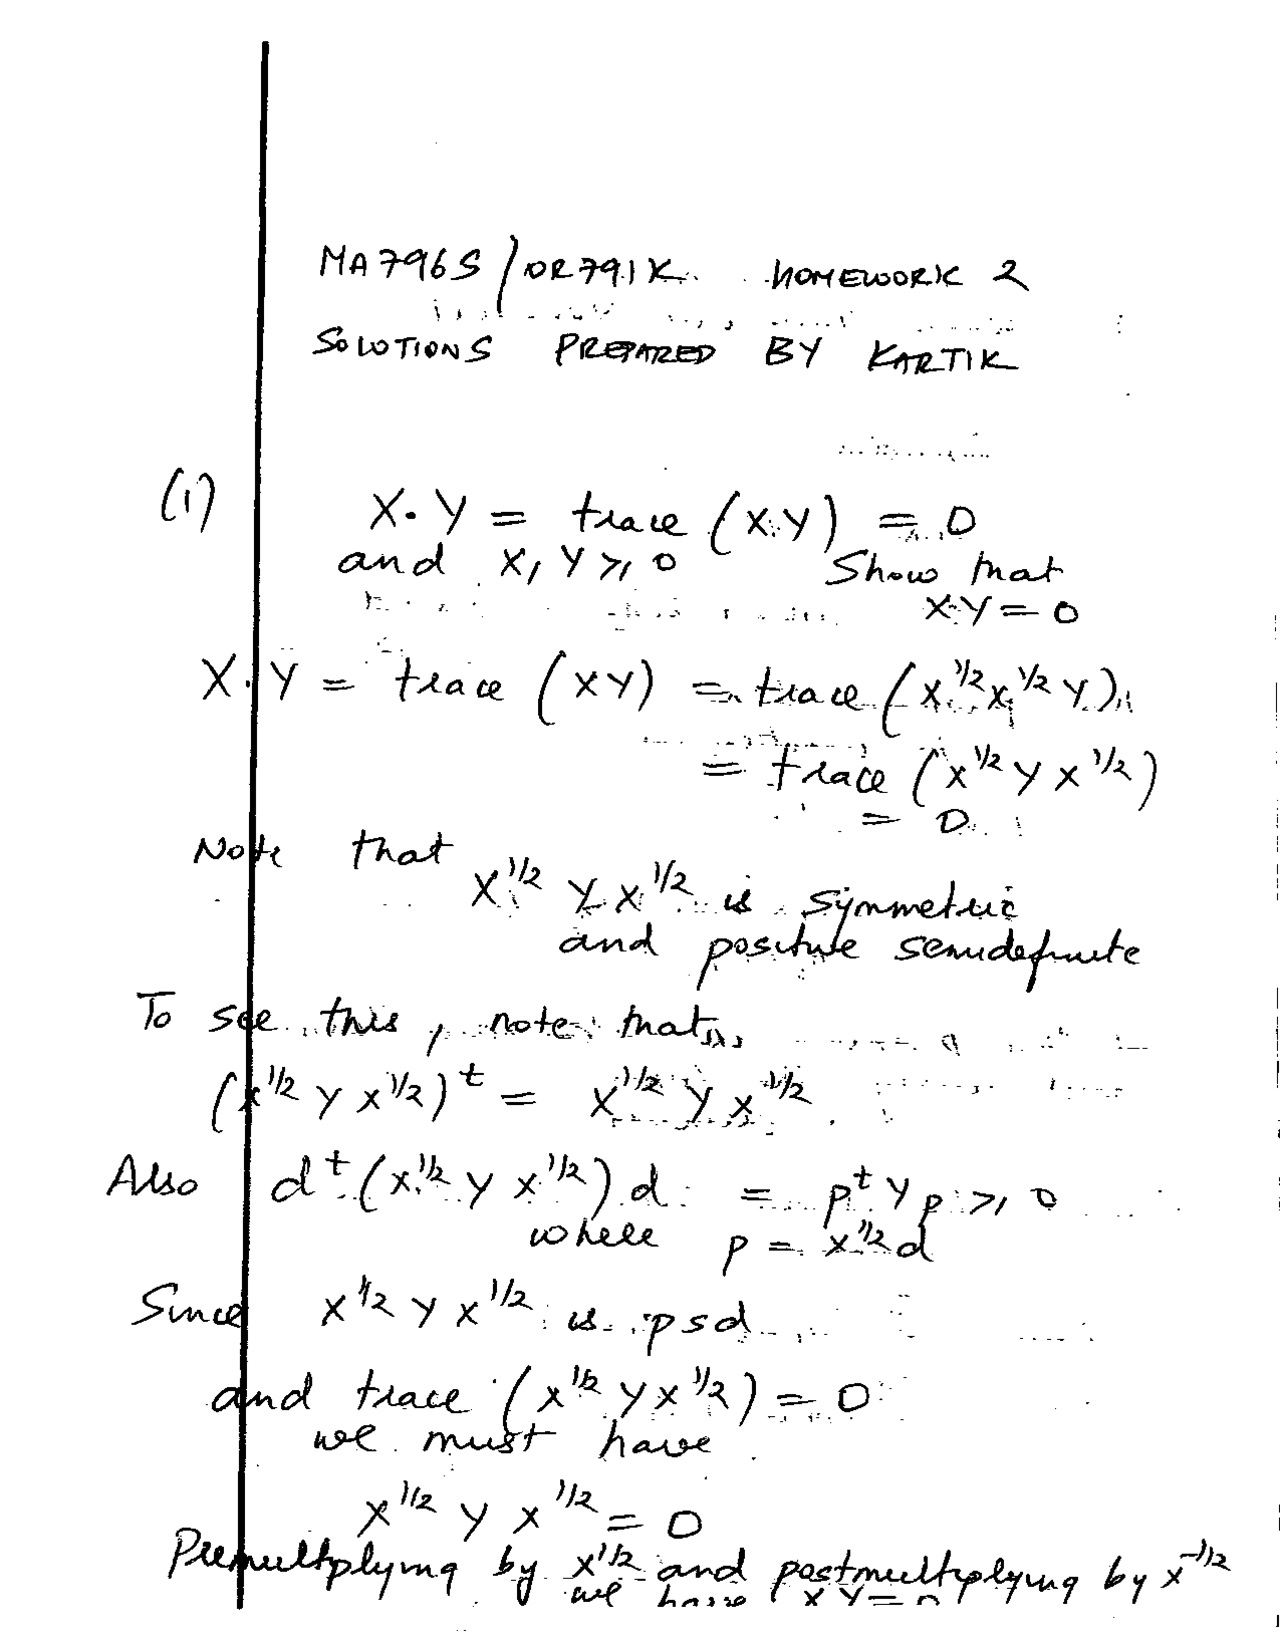 MA796S/OR791K HOMEWORK 2
SOLUTIONS PREPARED BY KARTIK
(1) X.Y = trace (XY) = 0
and X, Y ≥ 0 Show that
XY = 0
X.Y = trace (XY) = trace (X^1/2 X^1/2 Y)
= trace (X^1/2 Y X^1/2)
= 0
Note that
X^1/2 Y X^1/2 is symmetric
and positive semidefinite
To see this, note that
(X^1/2 Y X^1/2)^t = X^1/2 Y X^1/2
Also d^t (X^1/2 Y X^1/2) d = p^t Y p ≥ 0
where p = X^1/2 d
Since X^1/2 Y X^1/2 is psd
and trace (X^1/2 Y X^1/2) = 0
we must have
X^1/2 Y X^1/2 = 0
Premultiplying by X^1/2 and postmultiplying by X^-1/2
we have XY = 0